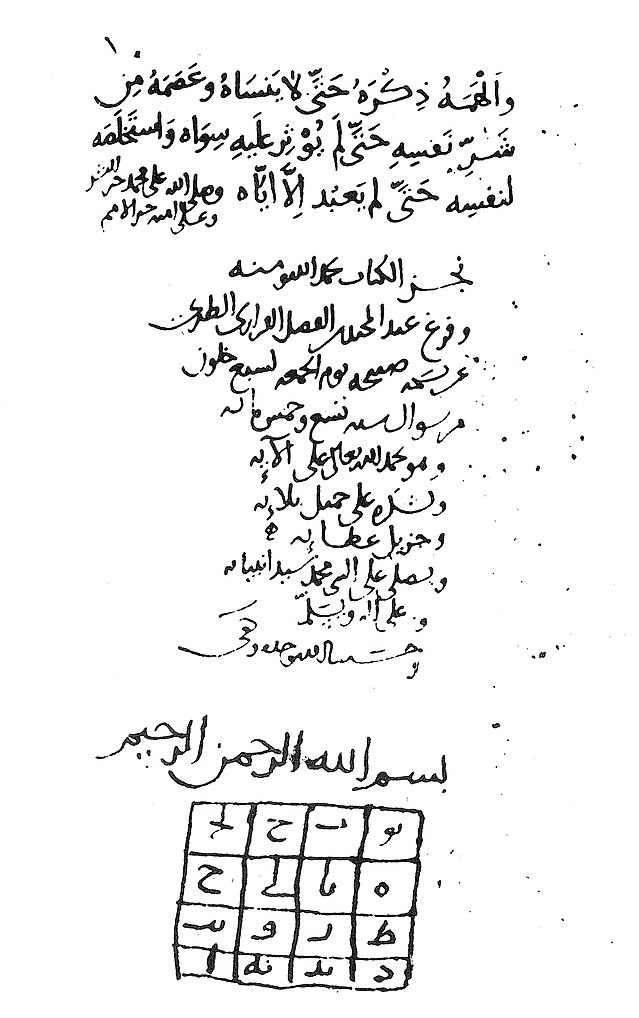 وَألْهَمَهُ ذِكْرَهُ حَتَّى لا يَنسَاهُ وعَصَمَهُ مِن
شَرِّ نَفسِهِ حَتَّى لَم يُؤْثِر عَلَيهِ سِوَاه وَاستَخلَصَه
لنفسِه حَتَّى لم يَعبُد اِلَّا ايَّاه وصلى الله على محمد خير البشر
وعلى امته خير الامم
نجز الكتاب بحمد الله ومنه
وفرغ عبد الفضل الطبري
صبيحه يوم الجمعه لسبع خلون
من شوال سنه تسع وخمس مائه
وهو بحمد الله تعالى على آلآئه
وشكره على جميل بلائه
وجزيل عطائه
ويصلي على النبي محمد سيد انبيائه
وعلى اله ويسلّم
وحسبنا الله وحده وكفى
بسم الله الرحمن الرحيم
يو ب ج يج
ه يا ي ح
ط ز و يب
د يد يه ا